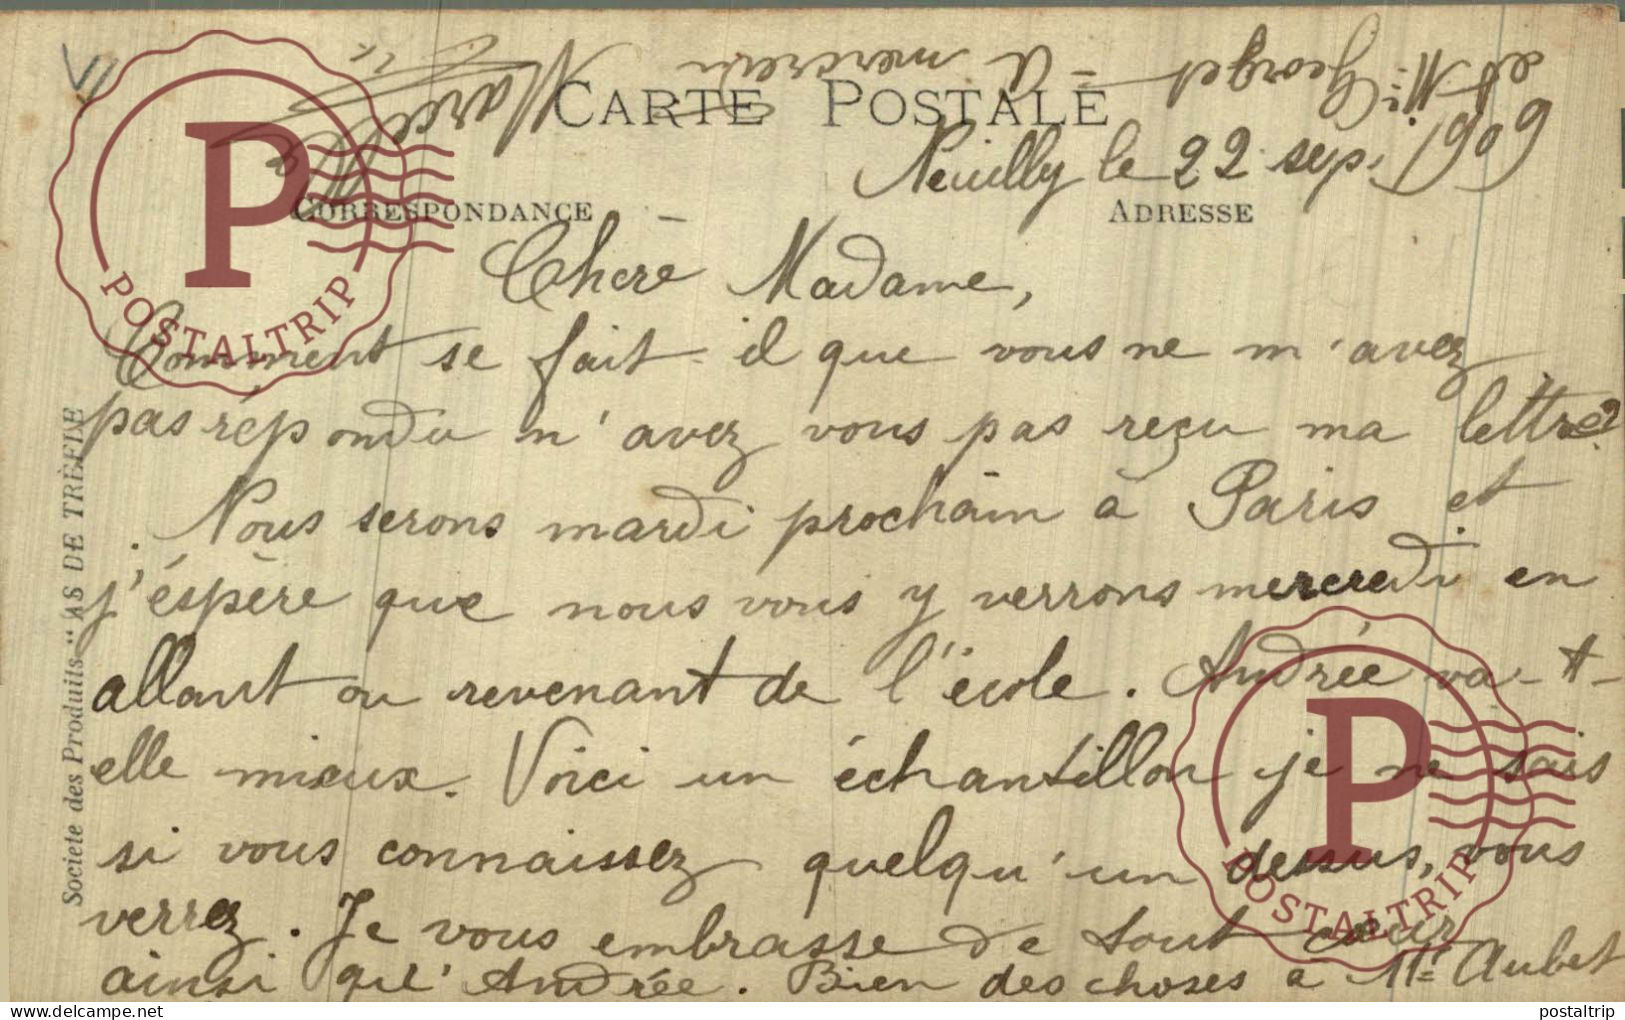 CARTE POSTALE
Neuilly le 22 sept 1909
CORRESPONDANCE
ADRESSE
Chère Madame,
Comment se fait-il que vous ne m'avez
pas répondu n'avez vous pas reçu ma lettre?
Nous serons mardi prochain à Paris et
j'éspère que nous vous y verrons mercredi en
allant ou revenant de l'école. Andrée va-t-
elle mieux. Voici un échantillon je ne sais
si vous connaissez quelqu'un dessus, vous
verrez. Je vous embrasse de tout cœur
ainsi qu'Andrée. Bien des choses à Mr Aubet
et Mr Georget - à mercredi
Marcelle
Societe des Produits "AS DE TRÈFLE
POSTALTRIP
POSTALTRIP
www.delcampe.net
postaltrip